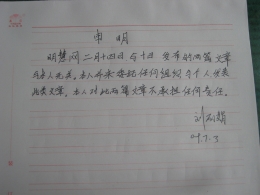 申明
明慧网二月十四日与十日发布的两篇文章
与本人无关。本人并未委托任何组织与个人发表
此类文章。本人对此两篇文章不承担任何责任。
刘
09.7.3